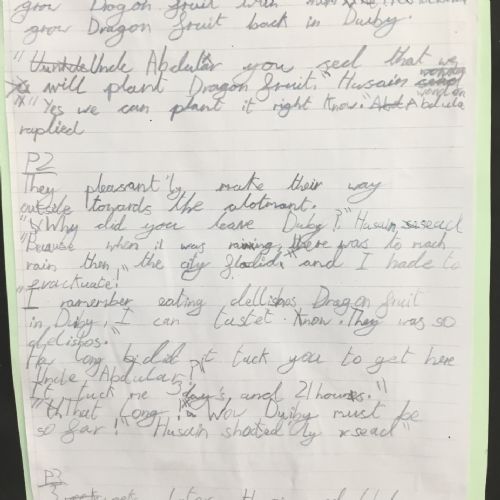 grow Dragon fruit with
grow Dragon fruit back in Duiby.
"Uncle Abdular you sed that we
will plant Dragon fruit." Husain
"Yes we can plant it right know." Abdula
raplied
P2
They pleasant'ly make their way
outside towards the alotmant.
"Why did you leave Duiby?" Husain sead
"Because when it was raining, there was to much
rain then the city fladid," and I hade to
evactuate!"
"I ramember eating dellishos Dragon fruit
in Duiby, I can tastet know. They was so
dellishos."
Ha long did it tuck you to get here
Uncle Abdular?"
It tuck me 3 day's and 21 hours."
"That long! Wow Duiby must be
so far!" Husain shoted'ly sead"
P3